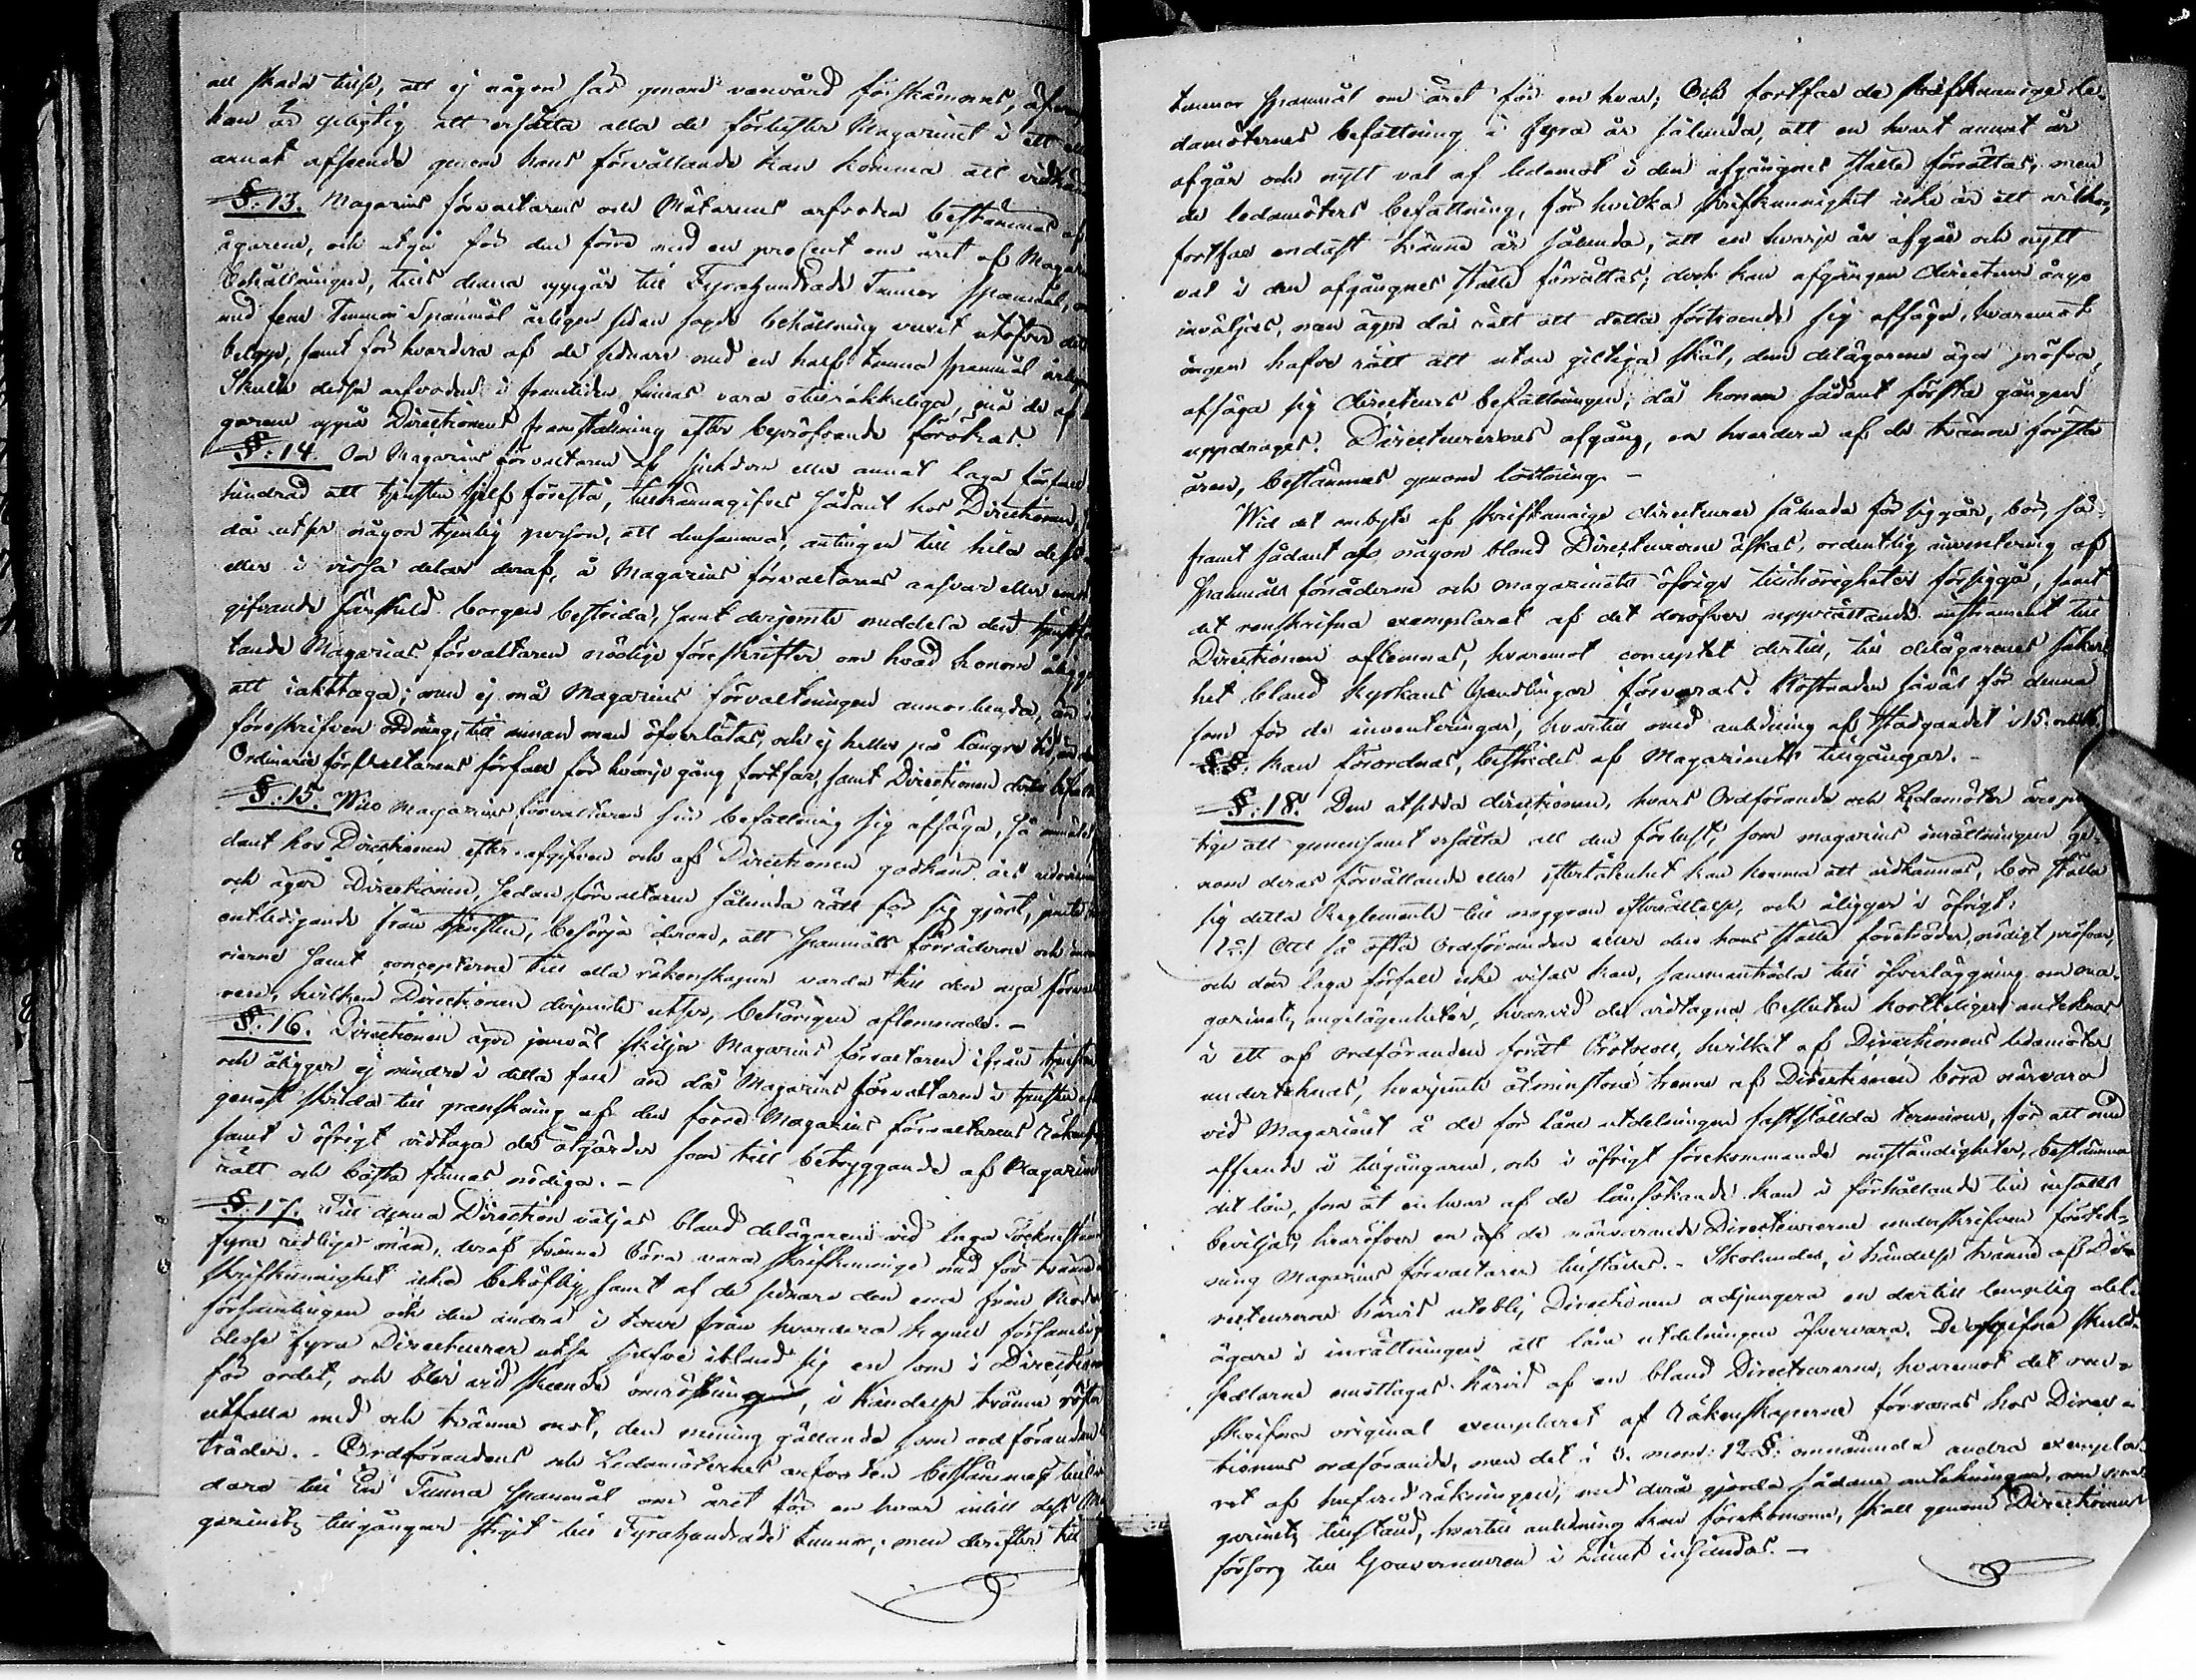 all skada tillse, att ej någon säd genom vanvård förskämmes, äfven
han är pligtig att ersätta alla de förluster Magazinet i ett
annat afseende genom hans förvållande kan komma att
§. 13. Magazins förvaltarens och Mätarens arfvoden bestämmas af
ägarene, och utgå för den förre med en procent om året af Magaz
behållningen, tills denna uppgår till Fyrahundrade Tunnor Spannmål,
med fem Tunnor Spanmål årligen sedan sagde behållning vuxit utöfver det
belopp, samt för hvardera af de sednare med en half tunna spanmål årligen
Skulle dessa arfvoden i framtiden finnas vara otillräkkeliga, må de af
garene uppå Directionens framställning efter bepröfvande förökas.
§. 14. Om Magazins förvaltaren af sjukdom eller annat laga förfall
hindrad att tjensten sjelf förestå, tillkännagifves sådant hos Directionen,
då utser någon tjenlig person, att densamma, antingen till hela dess
eller i vissa delar deraf, å Magazins förvaltarens ansvar eller emot
gifvande särskild borgen bestrida, samt derjemte meddela den tjenst
tande Magazins förvaltaren nödige föreskrifter om hvad honom åligger
att iakttaga; men ej må Magazins förvaltningen annorlunda, än i
föreskrifven ordning, till annan man öfverlåtas, och ej heller på längre tid, än
Ordinarie förvaltarens förfall för hvarje gång fortfar, samt Directionen
§. 15. Will Magazins förvaltaren sin befattning sig afsäga, så anmäles
dant hos Directionen efter afgifven och af Directionen godkänd års redovisning
och äger Directionen, sedan förvaltaren sålunda rätt för sig gjort, jemte
entledigande från tjensten, besörja derom, att spannmåls förråderne och
rierne samt concepterne till alla räkenskaper varda till den nya förval
ren, hvilken Directionen derjemte utser, behörigen aflemnade. –
§. 16. Directionen äger jemväl skilja Magazins förvaltaren ifrån tjensten
och åligger ej mindre i detta fall än då Magazins förvaltaren i tjensten
genast skrida till granskning af den förre Magazins förvaltarens Räken
samt i öfrigt vidtaga de åtgärder som till betryggande af Magazinets
rätt och bästa finnas nödiga. –
§. 17. Till denna Direction väljas bland delägarene vid laga Sockenstämma
fyra redlige män, deraf tvänne böra vara skrifkunnige med för tvänne
skrifkunnighet icke behöflig, samt af de sednare den ena från Moder
församlingen och den andra i tour från hvardera kapell församling
desse fyra Directeurer utse sjelfve ibland sig en som i Direction
för ordet, och blir vid skeende omröstningar, i händelse tvänne röster
utfalla med och tvänne emot, den mening gällande som ordföranden
träder. – Ordförandens och Ledamöternes arfvoden bestämmas
dare till En Tunna Spanmål om året för en hvar intill dess Ma
gazinets tillgångar stigit till Fyrahundrade tunnor; men derefter till
tunnor spanmål om året för en hvar; Och fortfar de skrifkunnige le-
damöternes befattning i fyra år sålunda, att en hvart annat år
afgår och nytt val af ledamot i den afgångnes ställe förrättas, men
de ledamöters befattning, för hvilka skrifkunnighet icke är ett vilkor,
fortfar endast tvänne år sålunda, att en hvarje år afgår och nytt
val i den afgångnes ställe förrättas; dock kan afgången directeur ånyo
inväljas, men äger då rätt att detta förtroende sig afsäga, hvaremot
ingen hafve rätt att utan giltiga skäl, dem delägarene äga pröfva,
afsäga sig Directeurs befattningen, då honom sådant första gången
uppdrages. Directeurernes afgång, en hvardera af de tvänne första
åren, bestämmes genom lottning. –
Wid det ombyte af skrifkunnige directeurer sålunda för sig går, bör, så
framt sådant af någon bland Directeurerne äskas, ordentlig inventering af
spanmåls förråderne och magazinets öfrige tillhörigheter försiggå, samt
det renskrifna exemplaret af det deröfver upprättande instrument till
Directionen aflemnas, hvaremot conceptet dertill, till delägarenes säker-
het bland Kyrkans handlingar förvaras. Kostnaden såväl för denna
som för de inventeringar, hvartill med anledning af stadgandet i 15. och 16.
§§. kan förordnas, bestrides af Magazinets tillgångar. –
§. 18. Den utsedda directionen, hvars Ordförande och Ledamöter äro plig
tige att gemensamt ersätta all den förlust, som magazins inrättningen ge-
nom deras förvållande eller efterlåtenhet kan komma att vidkännas, bör ställa
sig detta Reglemente till noggrann efterrättelse, och åligger i öfrigt:
1:o) Att så ofta Ordföranden eller den hans ställe företräder, nödigt pröfvar,
och där laga förfall icke visas kan, sammanträda till öfverläggning om ma-
gazinets angelägenheter, hvarvid de vidtagna besluten kortteligen antecknas
i ett af ordföranden fördt Protocoll, hvilket af Directionens ledamöter
undertecknas, hvarjemte åtminstone trenne af Directionen böra närvara
vid Magazinet å de för låne utdelningen fastställda terminer, för att med
afseende å tillgångarne, och i öfrigt förekommande omständigheter, bestämma
det lån, som åt en hvar af de lånsökande kan i förhållande till insatts
beviljas, hvaröfver en af de närvarande Directeurerne underskrifven förtek-
ning Magazins förvaltaren tillställes. – Skolandes, i händelse tvänne af Di-
recteurerne härvid uteblif, Directionen adjungera en dertill lämpelig del-
ägare i inrättningen att låne utdelningen öfvervara. De afgifna skuld-
sedlarne emottagas härvid af en bland Directeurerne, hvaremot det ren-
skrifna original exemplaret af räkenskaperne förvaras hos Direc-
tionens ordförande, men det i 5. mom: 12. §. omnämnda andra exempla-
ret af hufvudräkningen, med derå gjorda sådane antekningar, om ma-
gazinets tillstånd, hvartill anledning kan förekomma, skall genom Directionens
försorg till Gouverneuren i Länet insändas. –